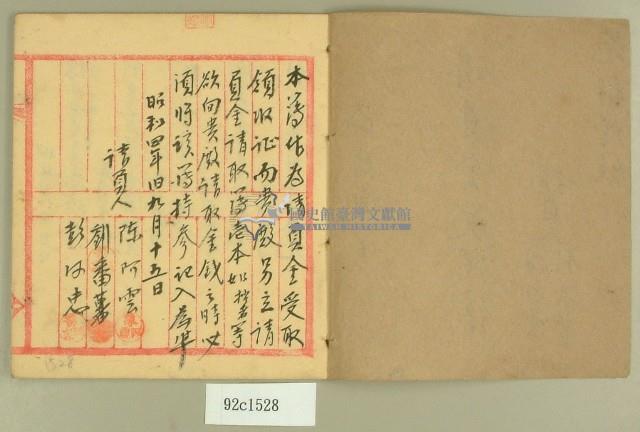 本簿作為請負金受取
領收証而貴殿另立請
負金請取簿壹本如拙者等
欲向貴殿請取金錢之時必
須將該簿持參記入為準
昭和四年旧九月十五日
請負人
陳阿雲
劉番薯
彭阿忠
國史館臺灣文獻館
TAIWAN HISTORICA
1528
92c1528